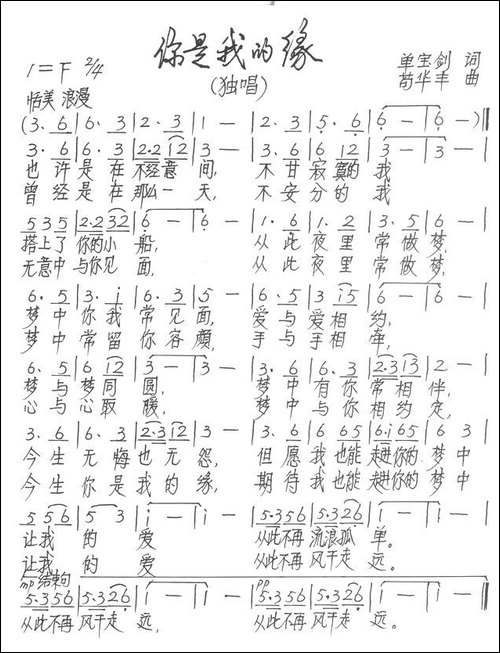 你是我的缘
(独唱)
1=F 2/4
单宝剑 词
苟华丰 曲
恬美 浪漫
(3. 6|6. 3|2. 3|1 —|2. 3|5. 6|6 —|6 —)‖
3. 6|6. 3|2.2 12|3 —|3. 6|6 12|3 —|3 —|
也许是在不经意间, 不甘寂寞的我
曾经是在那么一天, 不安分的我
5 3 5|2.2 32|6 —|6 —|1. 6|1. 2|3. 5|6 —|
搭上了你的小船, 从此夜里常做梦,
无意中与你见面, 从此夜里常做梦,
6. 5|3. i|6. 3|5 —|6. 5|3 i5|6 —|6 —|
梦中你我常见面, 爱与爱相约,
梦中常留你容颜, 手与手相牵,
6. 5|6 i2|3 —|3 —|3. 6|6. 3|2.3 i3|2 —|
梦与梦同圆, 梦中有你常相伴,
心与心取暖, 梦中与你相约定,
3. 6|6. 3|2.3 i2|3 —|3. 6|6 65|6.i 65|6 3|
今生无悔也无怨, 但愿我也能走进你的梦中
今生你是我的缘, 期待我也能走进你的梦中
5 5 6|5 3|i —|i —|5.3 56|5.3 26|i —|i —|
让我的爱 从此不再流浪孤单。
让我的爱 从此不再风干走远。
mp 结束句 pp
5.3 56|5.3 26|i —|i —|5.3 56|5.3 26|i —|i —‖
从此不再风干走远, 从此不再风干走远。